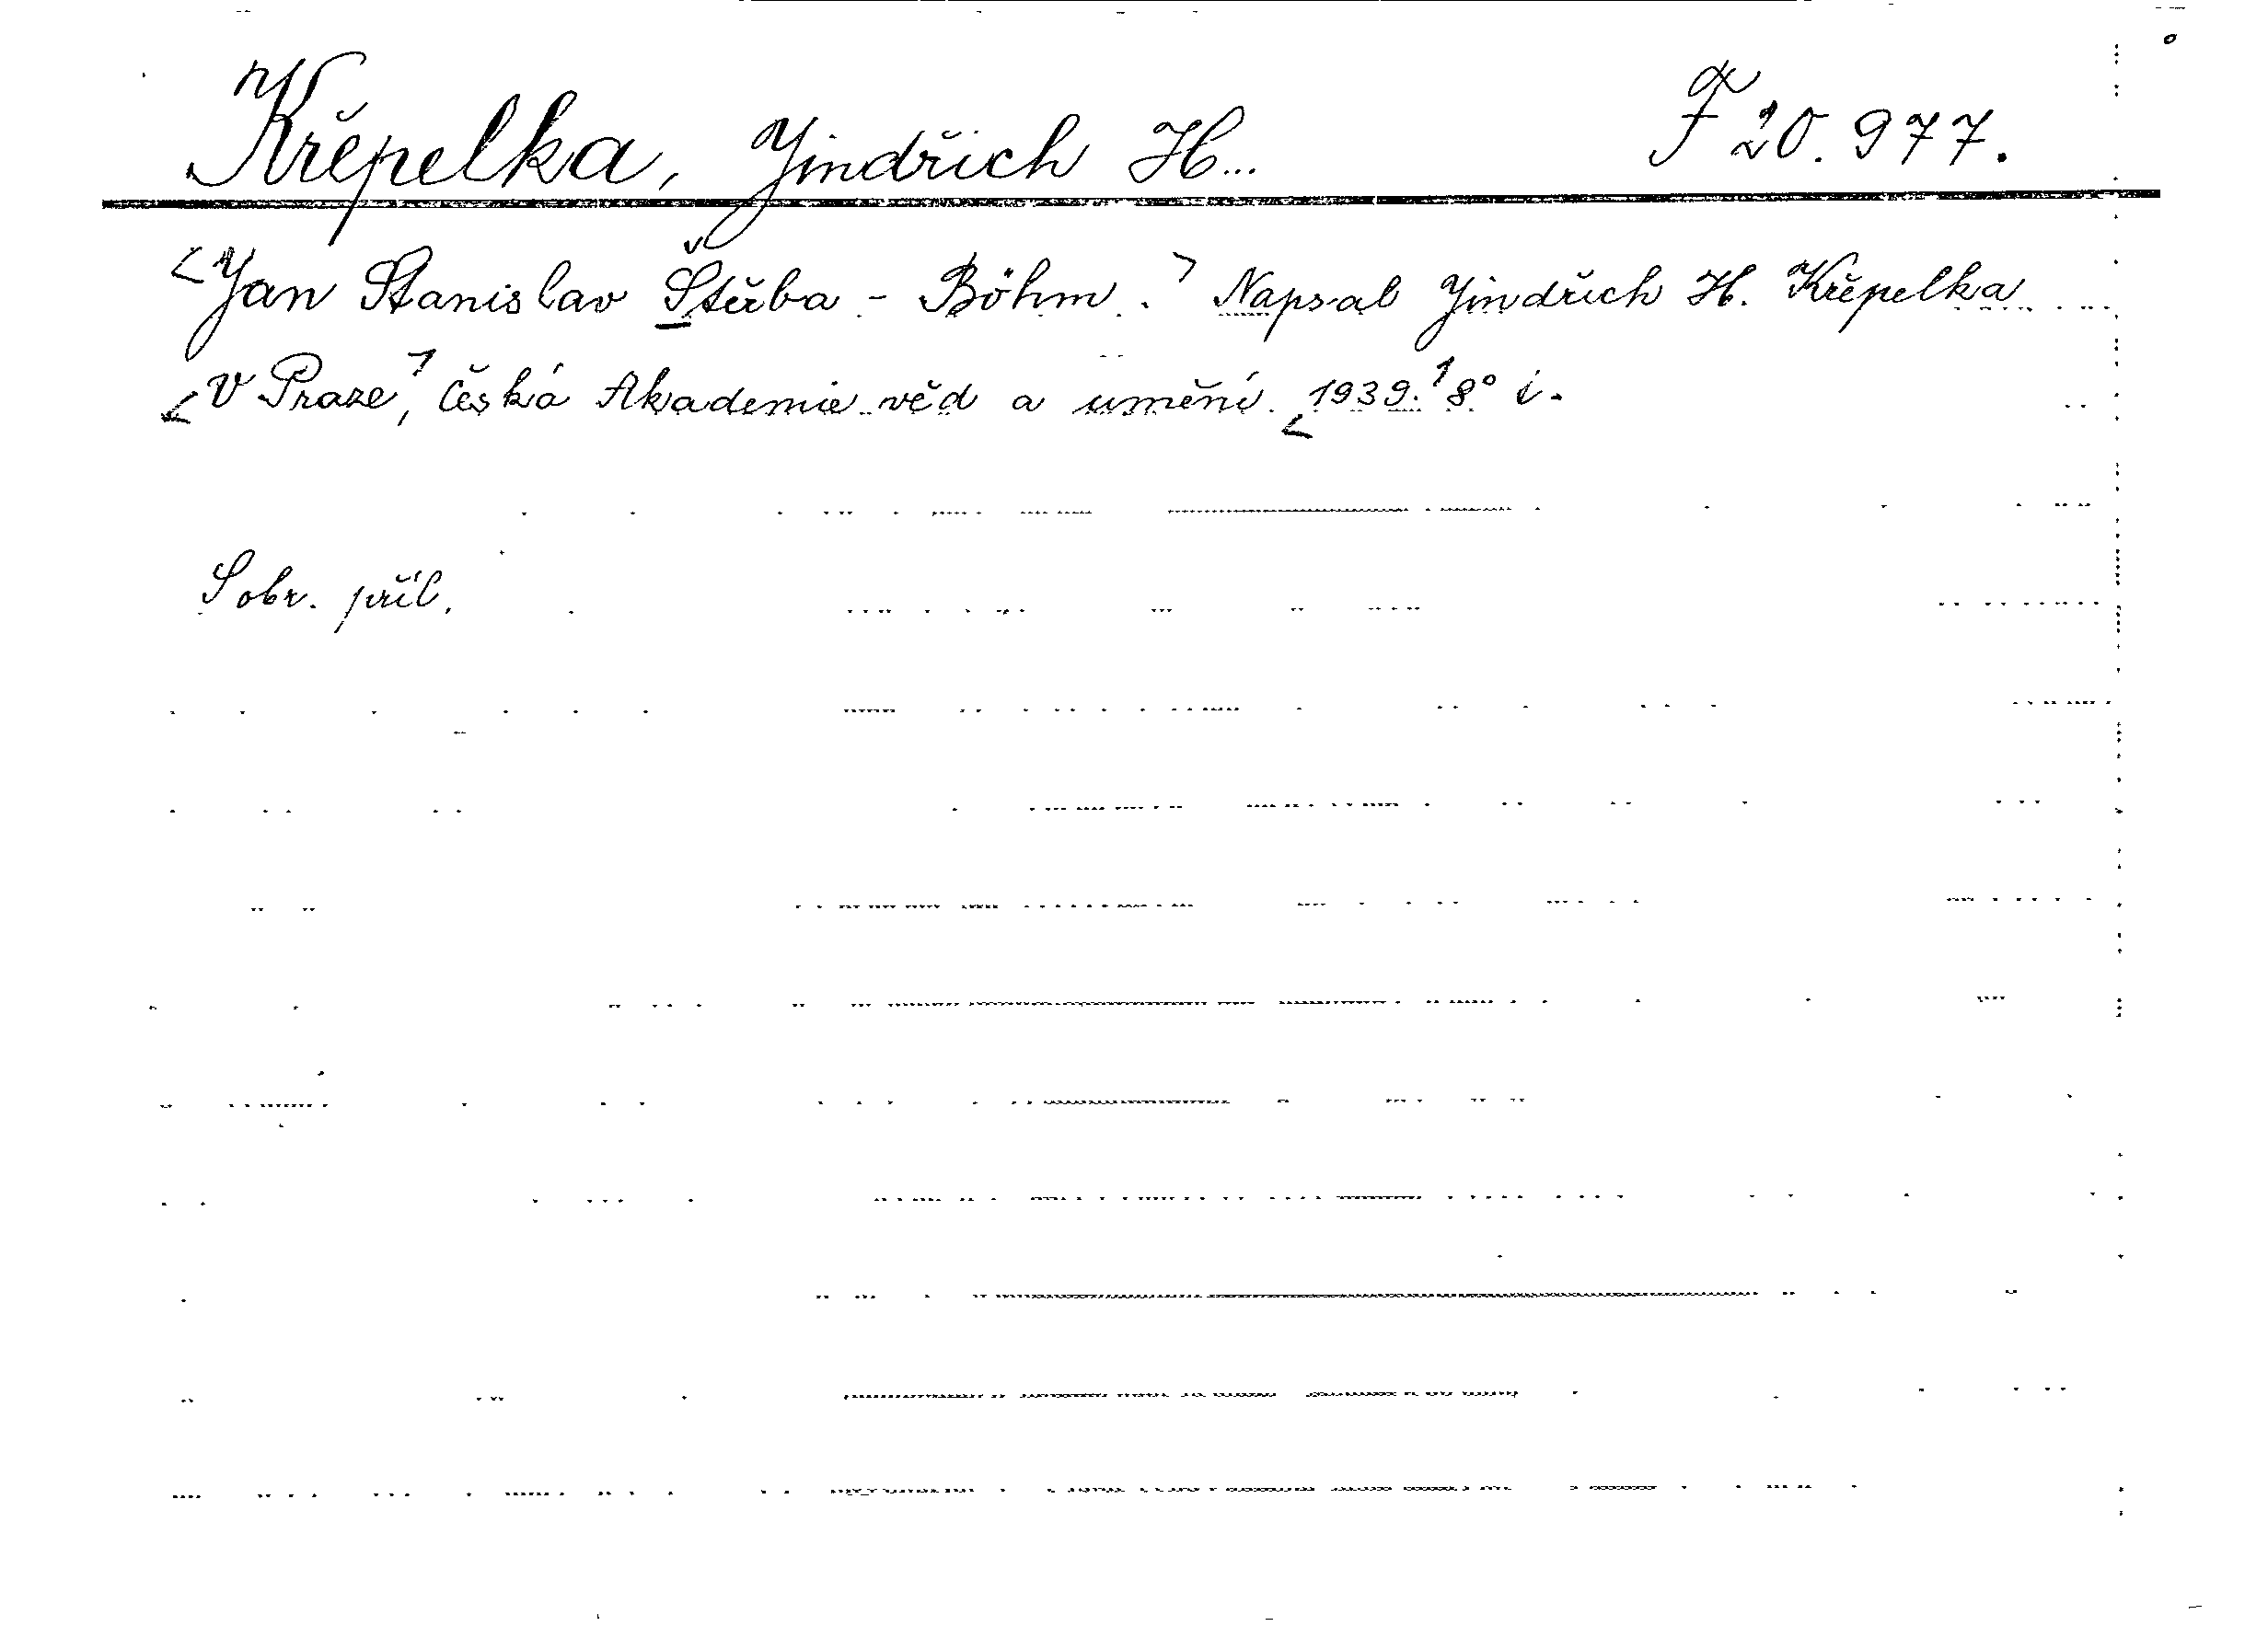 Křepelka, Jindřich H... F 20.977.
<Jan Stanislav Štěrba - Böhm.> Napsal Jindřich H. Křepelka
<V Praze>, Česká Akademie věd a umění. <1939.> 8° i.
S obr. příl.